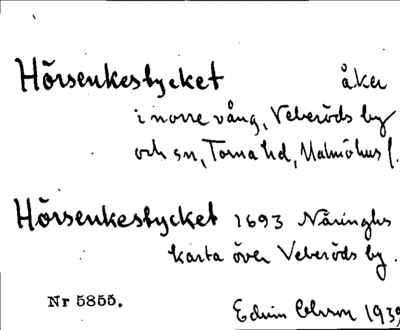 Hörsenkestycket åker
i norre vång, Veberöds by
och sn, Torna hd, Malmöhus l.
Hörsenkestycket 1693 Nåringhs
karta över Veberöds by.
Nr 5855.
Edvin Ohlsson 1939